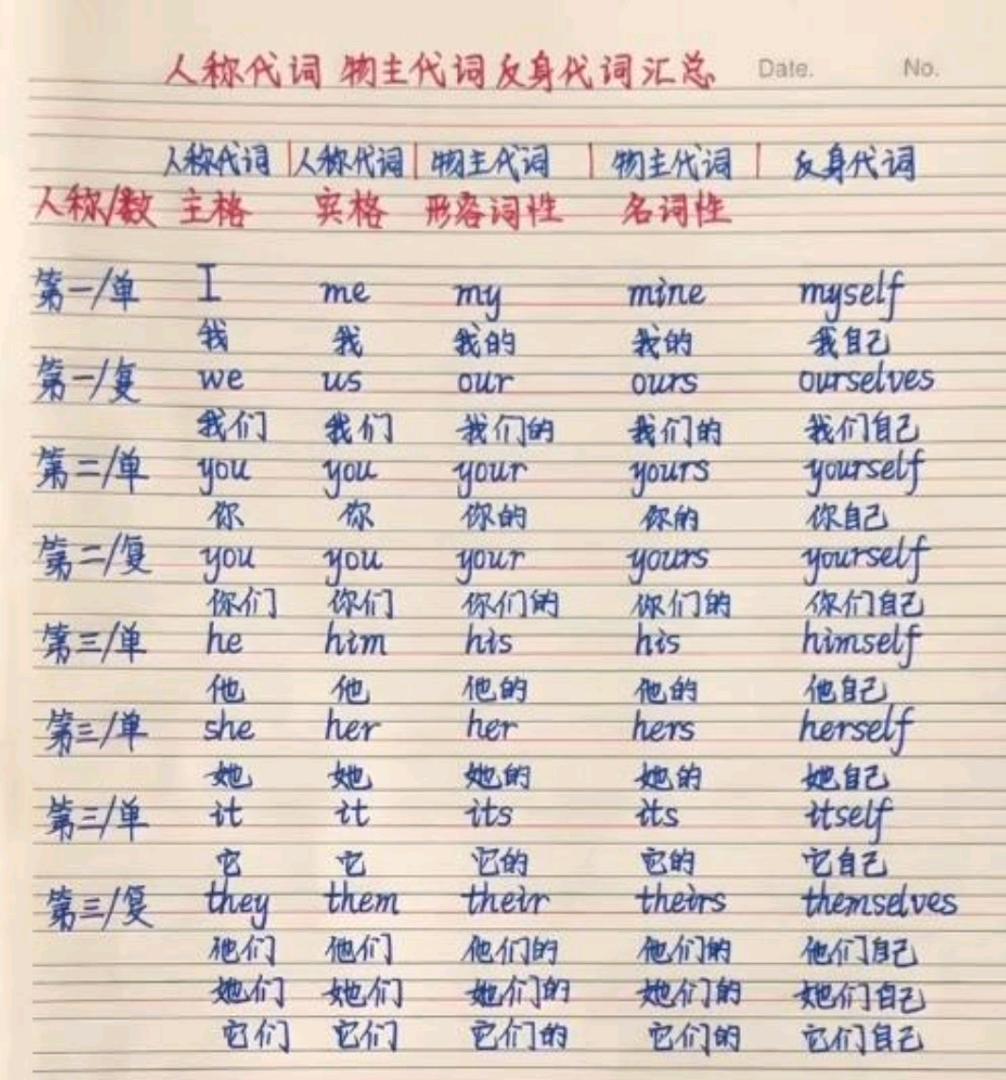 人称代词 物主代词 反身代词汇总 Date. No.
人称代词 | 人称代词 | 物主代词 | 物主代词 | 反身代词
人称/数 主格 宾格 形容词性 名词性
第一/单 I me my mine myself
我 我 我的 我的 我自己
第一/复 we us our ours ourselves
我们 我们 我们的 我们的 我们自己
第二/单 you you your yours yourself
你 你 你的 你的 你自己
第二/复 you you your yours yourself
你们 你们 你们的 你们的 你们自己
第三/单 he him his his himself
他 他 他的 他的 他自己
第三/单 she her her hers herself
她 她 她的 她的 她自己
第三/单 it it its its itself
它 它 它的 它的 它自己
第三/复 they them their theirs themselves
他们 他们 他们的 他们的 他们自己
她们 她们 她们的 她们的 她们自己
它们 它们 它们的 它们的 它们自己